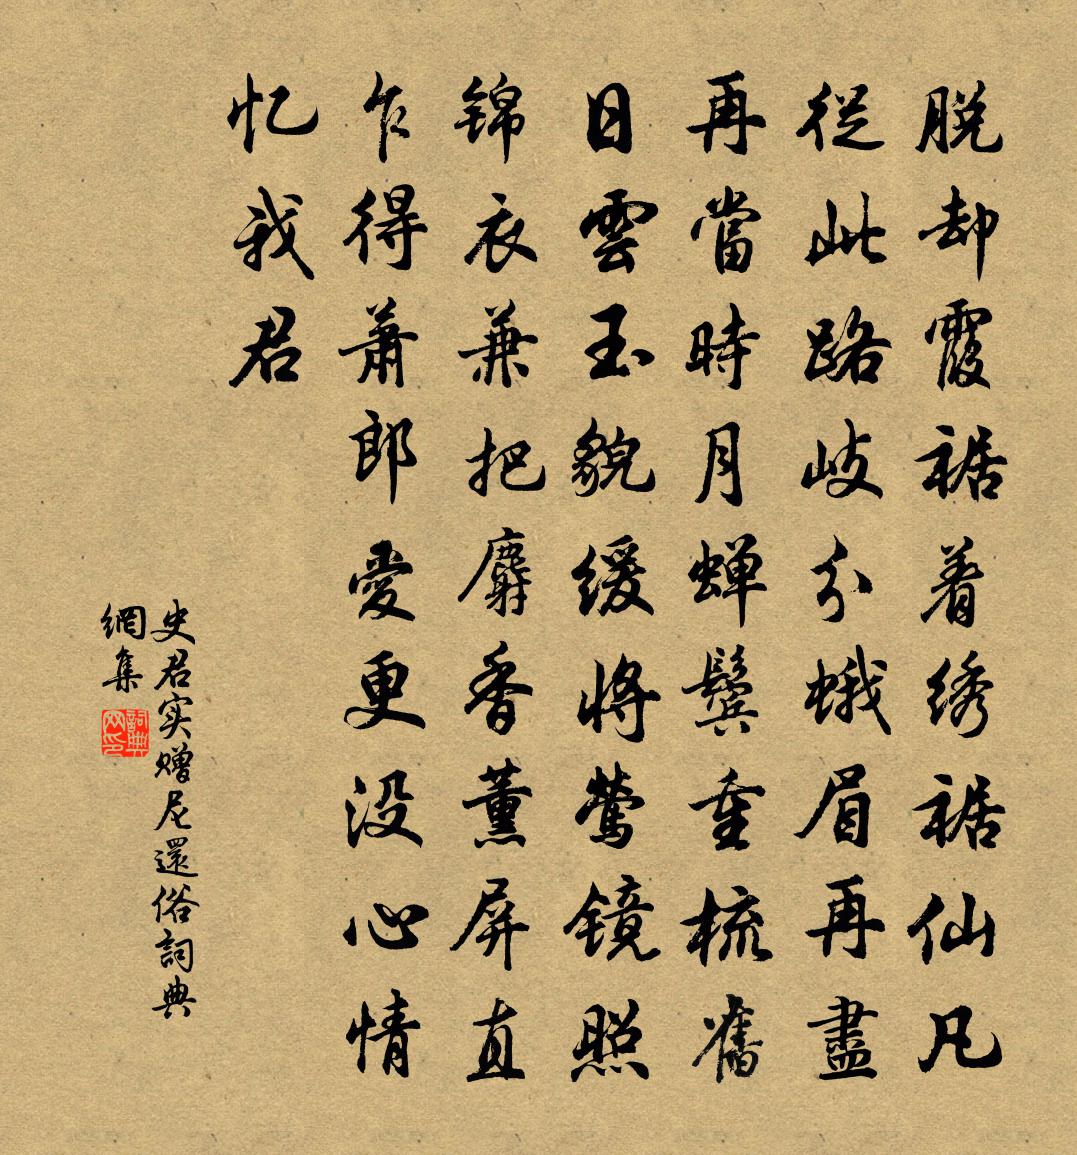 脱却霞裾着绣裾仙凡
從此路岐分蛾眉再盡
再當時月蝉鬓重梳舊
日雲玉貌缓将莺镜照
锦衣兼把麝香薰屏直
乍得萧郎愛更没心情
忆我君
史君实赠尼還俗詞典
網集
詞典
网印